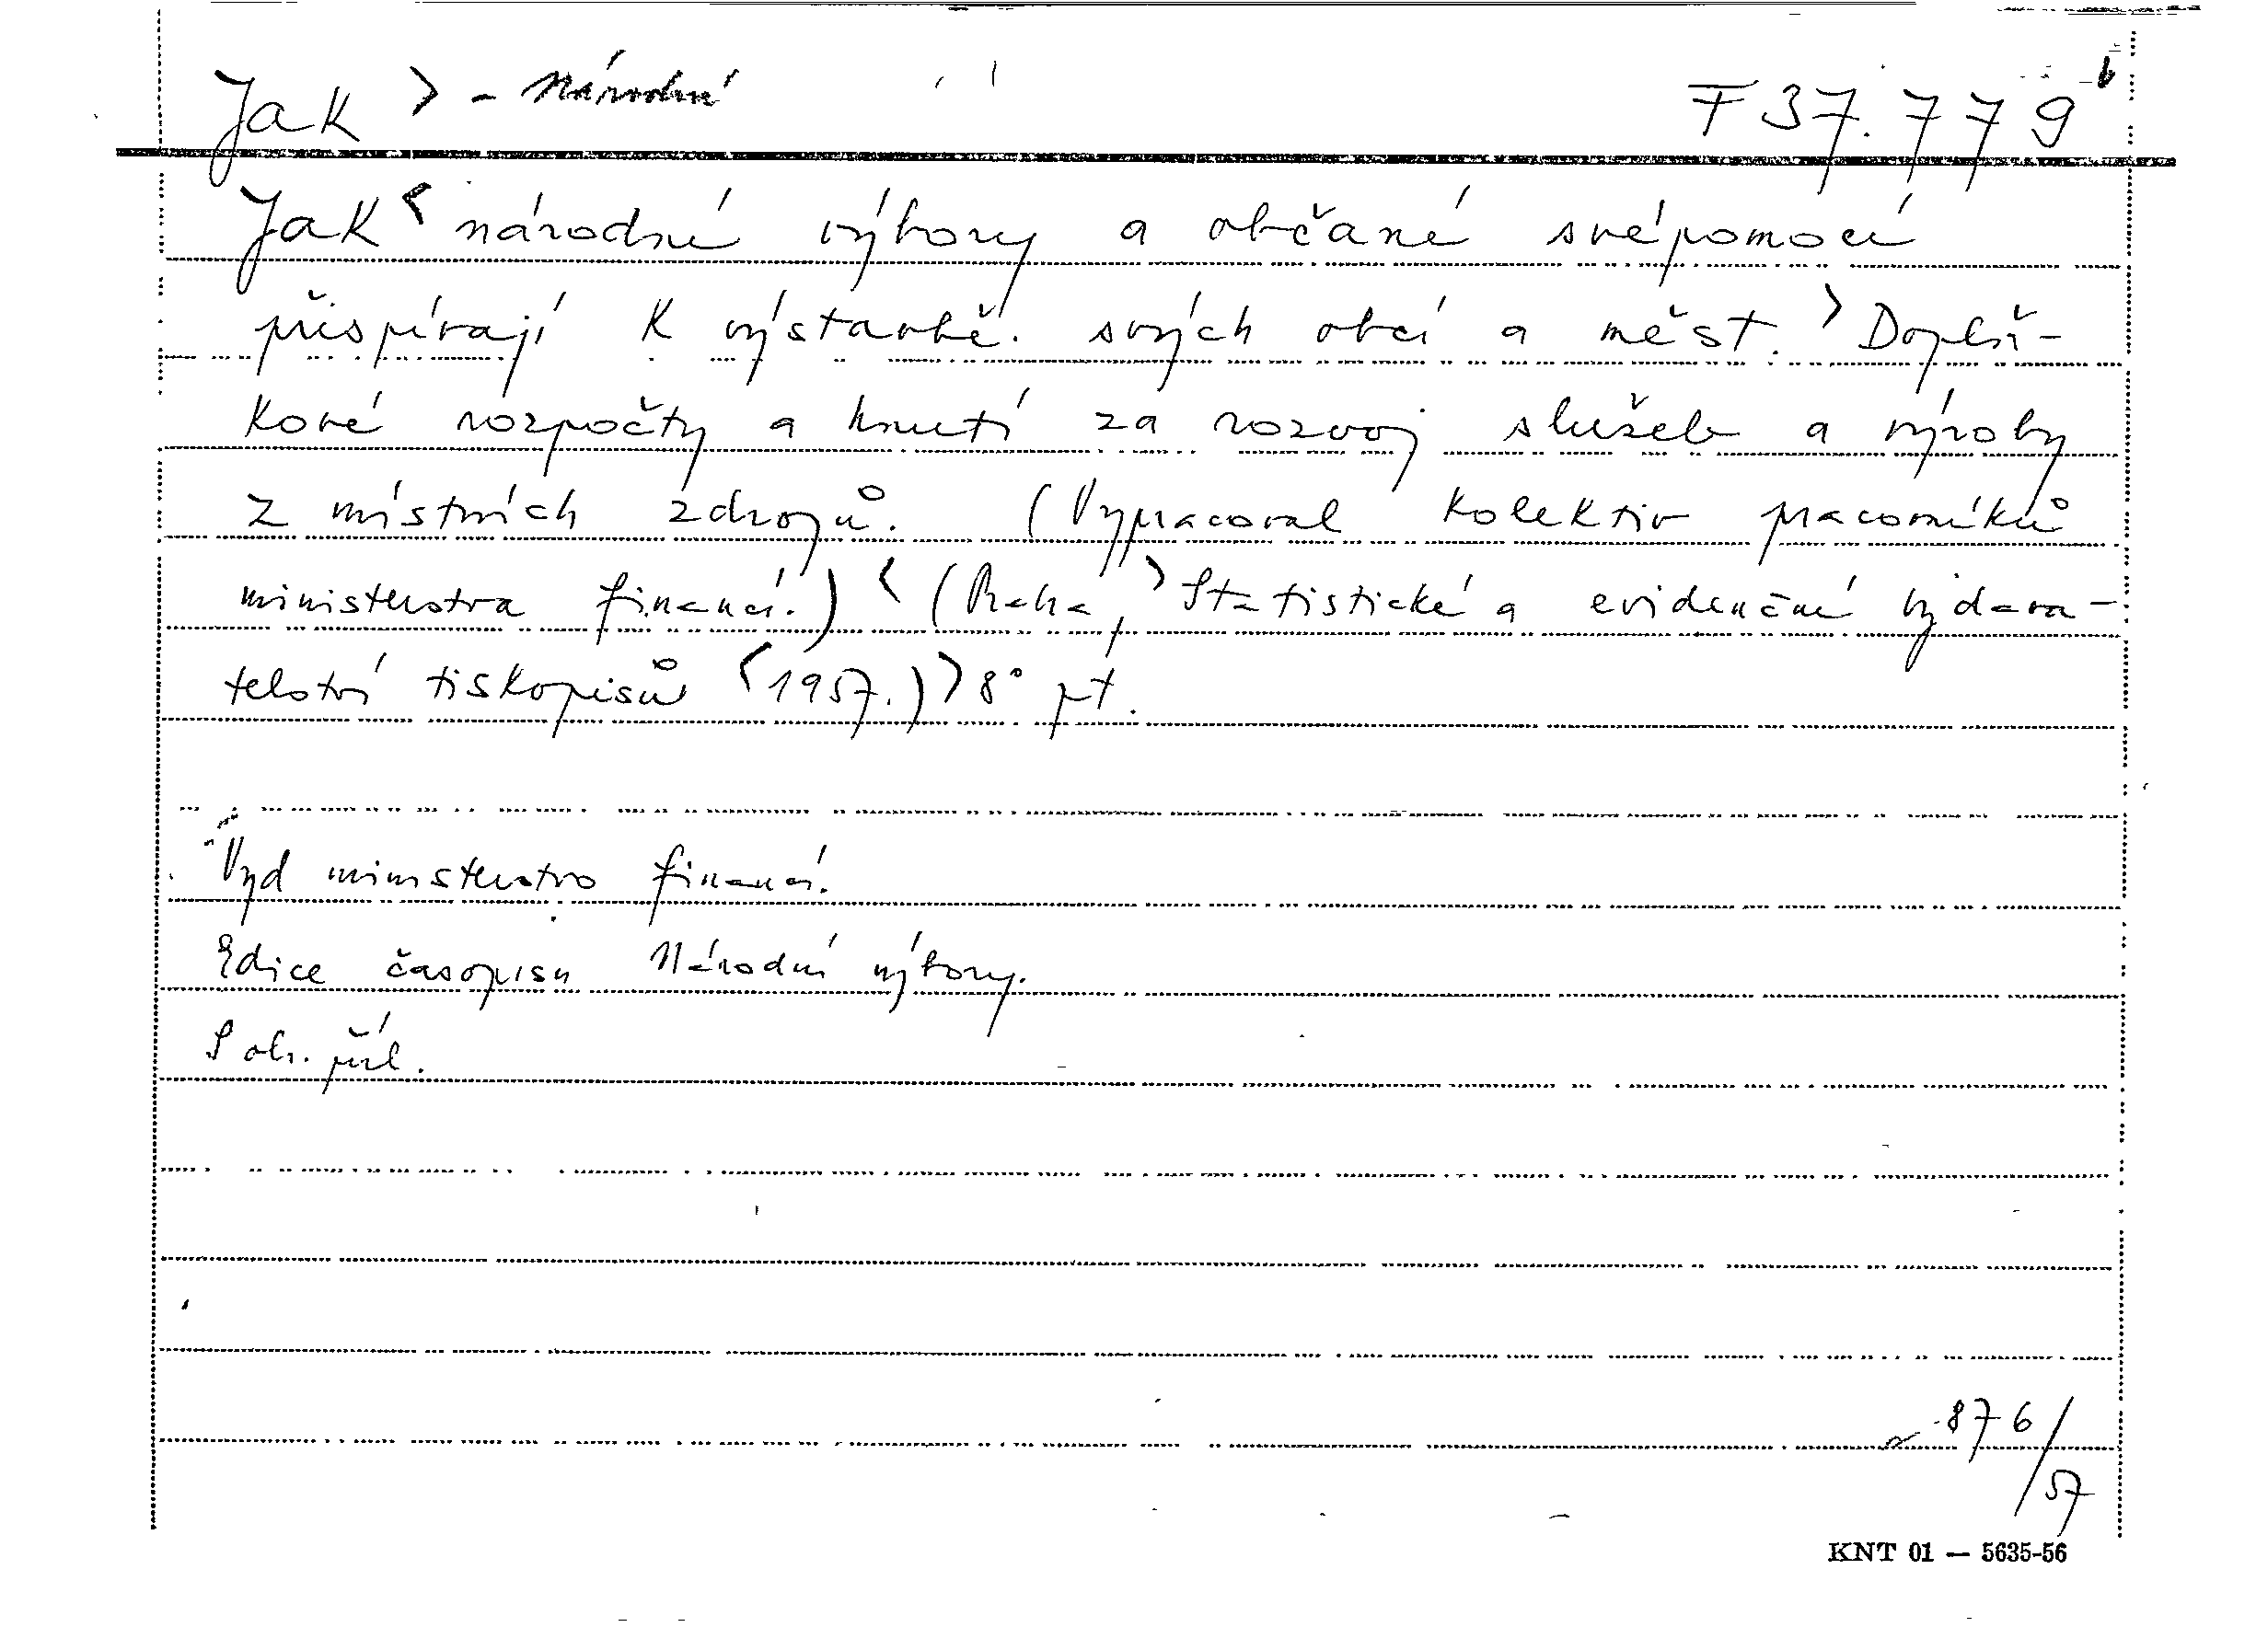 Jak > - Národní F 37.779 b
Jak < národní výbory a občané svépomocí
přispívají k výstavbě svých obcí a měst. > Doplň-
kové rozpočty a hnutí za rozvoj služeb a výroby
z místních zdrojů. (Vypracoval kolektiv pracovníků
ministerstva financí.) < (Praha, > Statistické a evidenční vydava-
telství tiskopisů < 1957.) > 8° pt.
Vyd ministerstvo financí.
Edice časopisu Národní výbory.
S obr. příl.
876/
57
KNT 01 — 5635-56